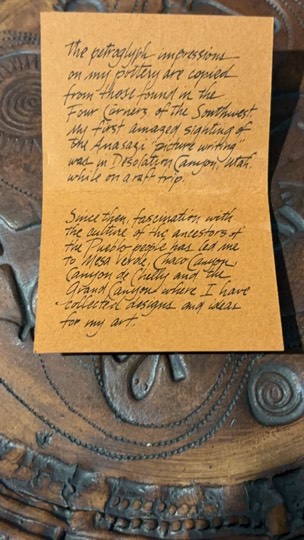 The petroglyph impressions
on my pottery are copied
from those found in the
Four Corners of the Southwest
My first amazed sighting of
the Anasazi "picture writing"
was in Desolation Canyon, Utah,
while on a raft trip.
Since then, fascination with
the culture of the ancestors of
the Pueblo people has led me
to Mesa Verde, Chaco Canyon,
Canyon de Chelly and the
Grand Canyon where I have
collected designs and ideas
for my art.